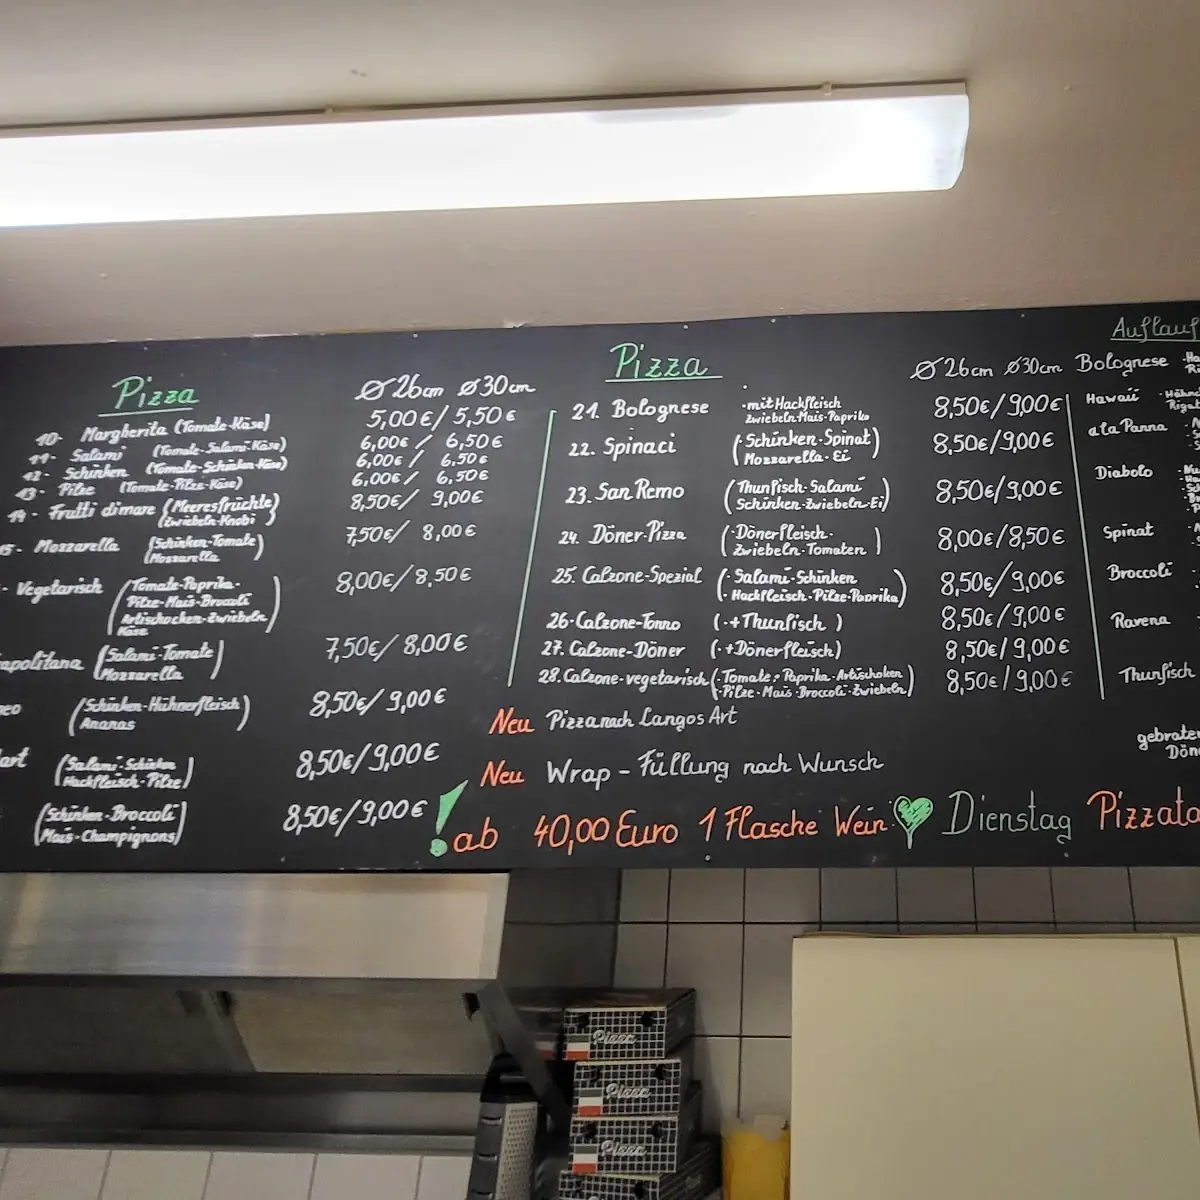 Pizza
Ø 26cm Ø 30cm
10- Margherita (Tomate-Käse) 5,00€ / 5,50€
11- Salami (Tomate-Salami-Käse) 6,00€ / 6,50€
12- Schinken (Tomate-Schinken-Käse) 6,00€ / 6,50€
13- Pilze (Tomate-Pilze-Käse) 6,00€ / 6,50€
14- Frutti di mare (Meeresfrüchte 8,50€ / 9,00€
Zwiebeln-Knobi)
15- Mozzarella (Schinken-Tomate 7,50€ / 8,00€
Mozzarella)
- Vegetarisch (Tomate-Paprika- 8,00€ / 8,50€
Pilze-Mais-Broccoli
Artischocken-Zwiebeln
Käse)
apolitana (Salami-Tomate 7,50€ / 8,00€
Mozzarella)
neo (Schinken-Hühnerfleisch 8,50€ / 9,00€
Ananas)
art (Salami-Schinken 8,50€ / 9,00€
Hackfleisch-Pilze)
(Schinken-Broccoli 8,50€ / 9,00€
Mais-Champignons)
Pizza
Ø 26cm Ø 30cm
21. Bolognese - mit Hackfleisch 8,50€ / 9,00€
Zwiebeln-Mais-Paprika
22. Spinaci (- Schinken-Spinat 8,50€ / 9,00€
Mozzarella-Ei)
23. San Remo (Thunfisch-Salami 8,50€ / 9,00€
Schinken-Zwiebeln-Ei)
24. Döner-Pizza (-Dönerfleisch- 8,00€ / 8,50€
Zwiebeln-Tomaten)
25. Calzone-Spezial (- Salami-Schinken 8,50€ / 9,00€
- Hackfleisch-Pilze-Paprika)
26- Calzone-Tonno (-+Thunfisch) 8,50€ / 9,00€
27. Calzone-Döner (-+Dönerfleisch) 8,50€ / 9,00€
28. Calzone-vegetarisch (-Tomate-Paprika-Artischoken 8,50€ / 9,00€
-Pilze-Mais-Broccoli-Zwiebeln)
Neu Pizza nach Langos Art
Neu Wrap - Füllung nach Wunsch
! ab 40,00 Euro 1 Flasche Wein Dienstag Pizzata
Auflauf
Bolognese
Hawaii
a la Panna
Diabolo
Spinat
Broccoli
Ravena
Thunfisch
gebraten
Dön
Pizza
Pizza
Pizza